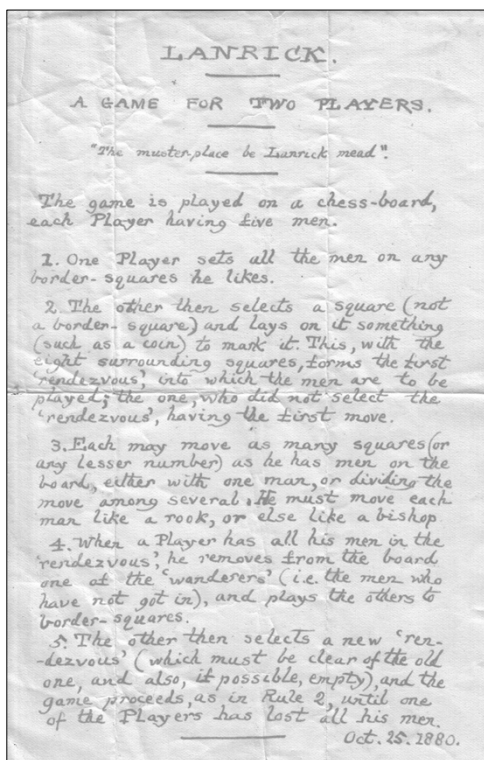 LANRICK.
A GAME FOR TWO PLAYERS.
"The muster-place be Lanrick mead".
The game is played on a chess-board,
each Player having five men.
1. One Player sets all the men on any
border-squares he likes.
2. The other then selects a square (not
a border-square) and lays on it something
(such as a coin) to mark it. This, with the
eight surrounding squares, forms the first
'rendezvous', into which the men are to be
played; the one, who did not select the
'rendezvous', having the first move.
3. Each may move as many squares (or
any lesser number) as he has men on the
board, either with one man, or dividing the
move among several. He must move each
man like a rook, or else like a bishop
4. When a Player has all his men in the
'rendezvous' he removes from the board
one of the 'wanderers' (i.e. the men who
have not got in), and plays the others to
border-squares.
5. The other then selects a new 'ren-
-dezvous' (which must be clear of the old
one, and also, if possible, empty), and the
game proceeds, as in Rule 2, until one
of the Players has lost all his men.
Oct. 25. 1880.